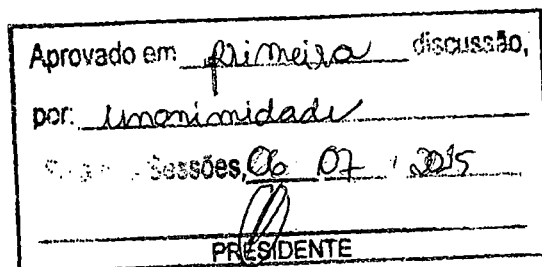 Aprovado em primeira discussão,
por: unanimidade
Sessões, 06 07 2015
PRESIDENTE